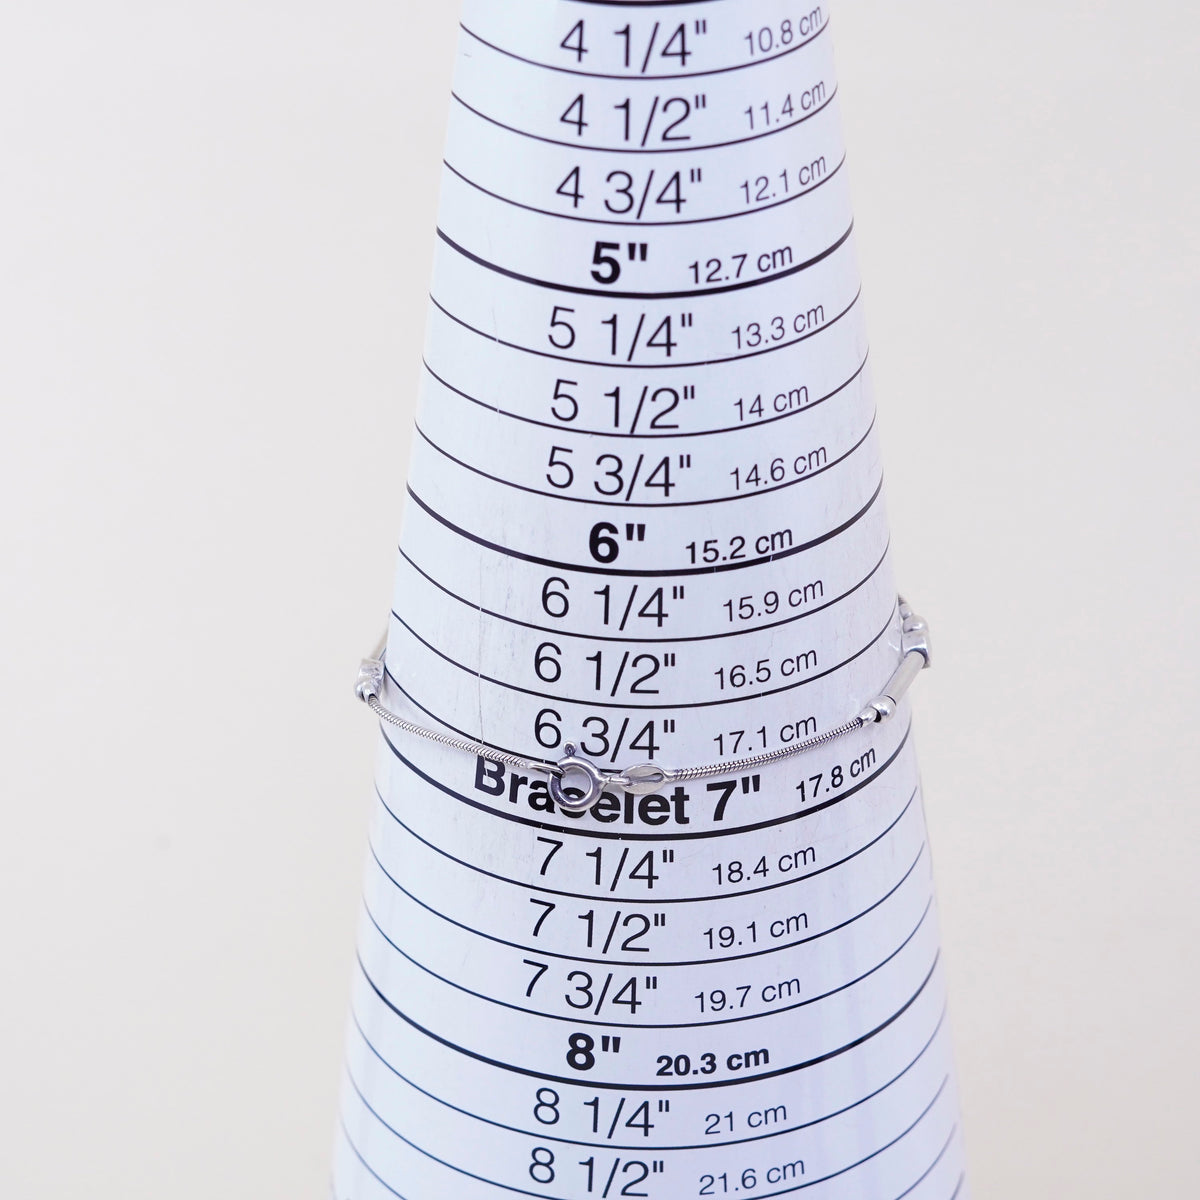 4 1/4" 10.8 cm
4 1/2" 11.4 cm
4 3/4" 12.1 cm
5" 12.7 cm
5 1/4" 13.3 cm
5 1/2" 14 cm
5 3/4" 14.6 cm
6" 15.2 cm
6 1/4" 15.9 cm
6 1/2" 16.5 cm
6 3/4" 17.1 cm
Bracelet 7" 17.8 cm
7 1/4" 18.4 cm
7 1/2" 19.1 cm
7 3/4" 19.7 cm
8" 20.3 cm
8 1/4" 21 cm
8 1/2" 21.6 cm